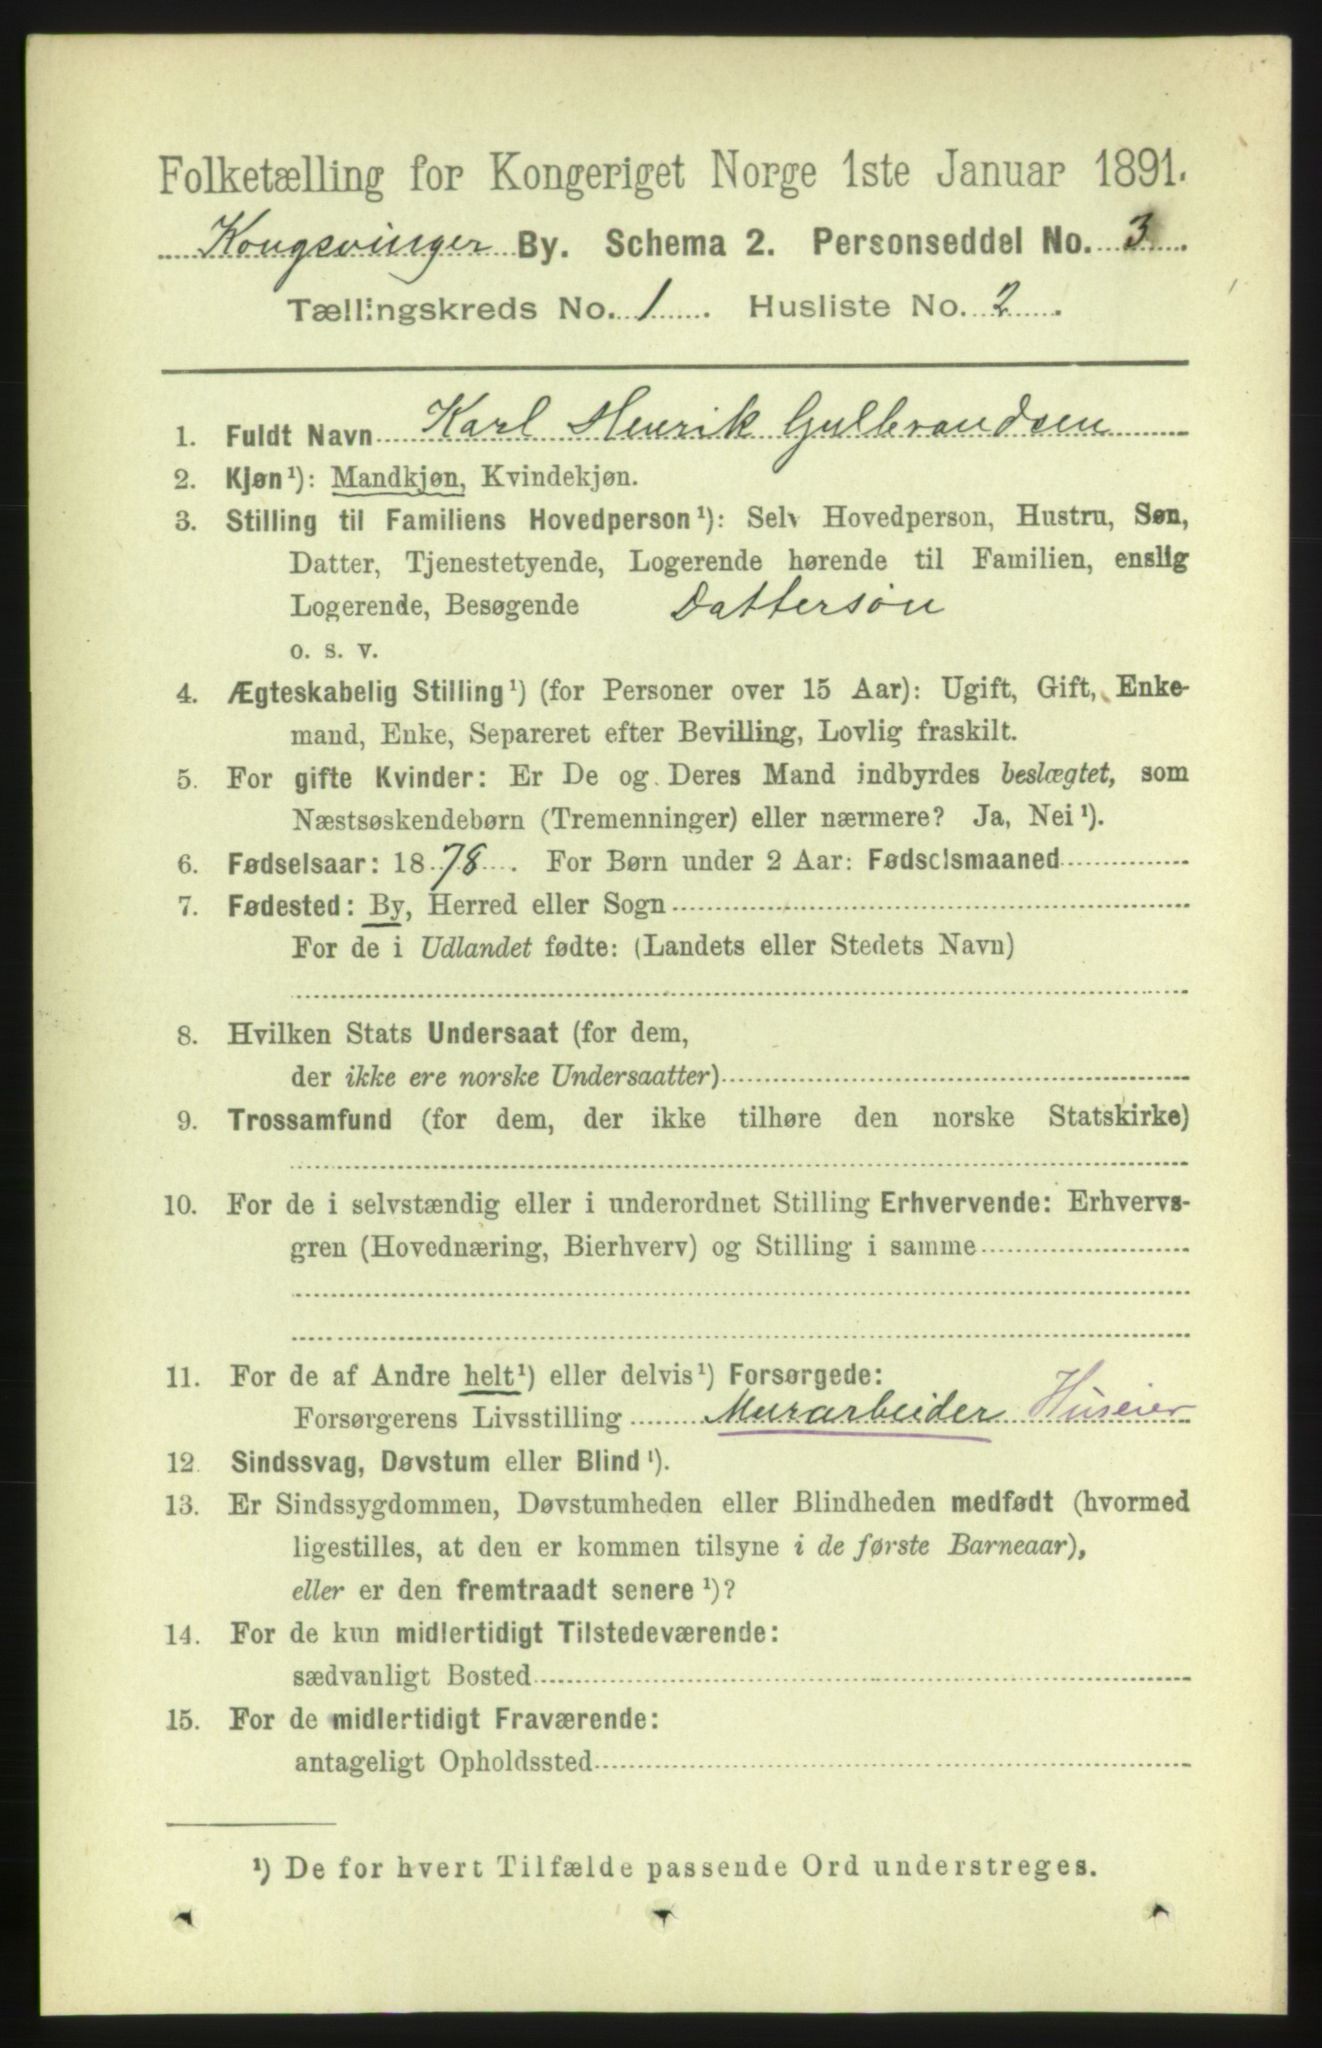 Folketælling for Kongeriget Norge 1ste Januar 1891.
Kongsvinger By. Schema 2. Personseddel No. 3.
Tællingskreds No. 1. Husliste No. 2.
1. Fuldt Navn Karl Henrik Gulbrandsen
2. Kjøn¹): Mandkjøn, Kvindekjøn.
3. Stilling til Familiens Hovedperson¹): Selv Hovedperson, Hustru, Søn,
Datter, Tjenestetyende, Logerende hørende til Familien, enslig
Logerende, Besøgende Dattersøn
o. s. v.
4. Ægteskabelig Stilling¹) (for Personer over 15 Aar): Ugift, Gift, Enke-
mand, Enke, Separeret efter Bevilling, Lovlig fraskilt.
5. For gifte Kvinder: Er De og Deres Mand indbyrdes beslægtet, som
Næstsøskendebørn (Tremenninger) eller nærmere? Ja, Nei¹).
6. Fødselsaar: 1878. For Børn under 2 Aar: Fødselsmaaned
7. Fødested: By, Herred eller Sogn
For de i Udlandet fødte: (Landets eller Stedets Navn)
8. Hvilken Stats Undersaat (for dem,
der ikke ere norske Undersaatter)
9. Trossamfund (for dem, der ikke tilhøre den norske Statskirke)
10. For de i selvstændig eller i underordnet Stilling Erhvervende: Erhvervs-
gren (Hovednæring, Bierhverv) og Stilling i samme
11. For de af Andre helt¹) eller delvis¹) Forsørgede:
Forsørgerens Livsstilling Murarbeider Huseier
12. Sindssvag, Døvstum eller Blind¹).
13. Er Sindssygdommen, Døvstumheden eller Blindheden medfødt (hvormed
ligestilles, at den er kommen tilsyne i de første Barneaar),
eller er den fremtraadt senere¹)?
14. For de kun midlertidigt Tilstedeværende:
sædvanligt Bosted
15. For de midlertidigt Fraværende:
antageligt Opholdssted
¹) De for hvert Tilfælde passende Ord understreges.